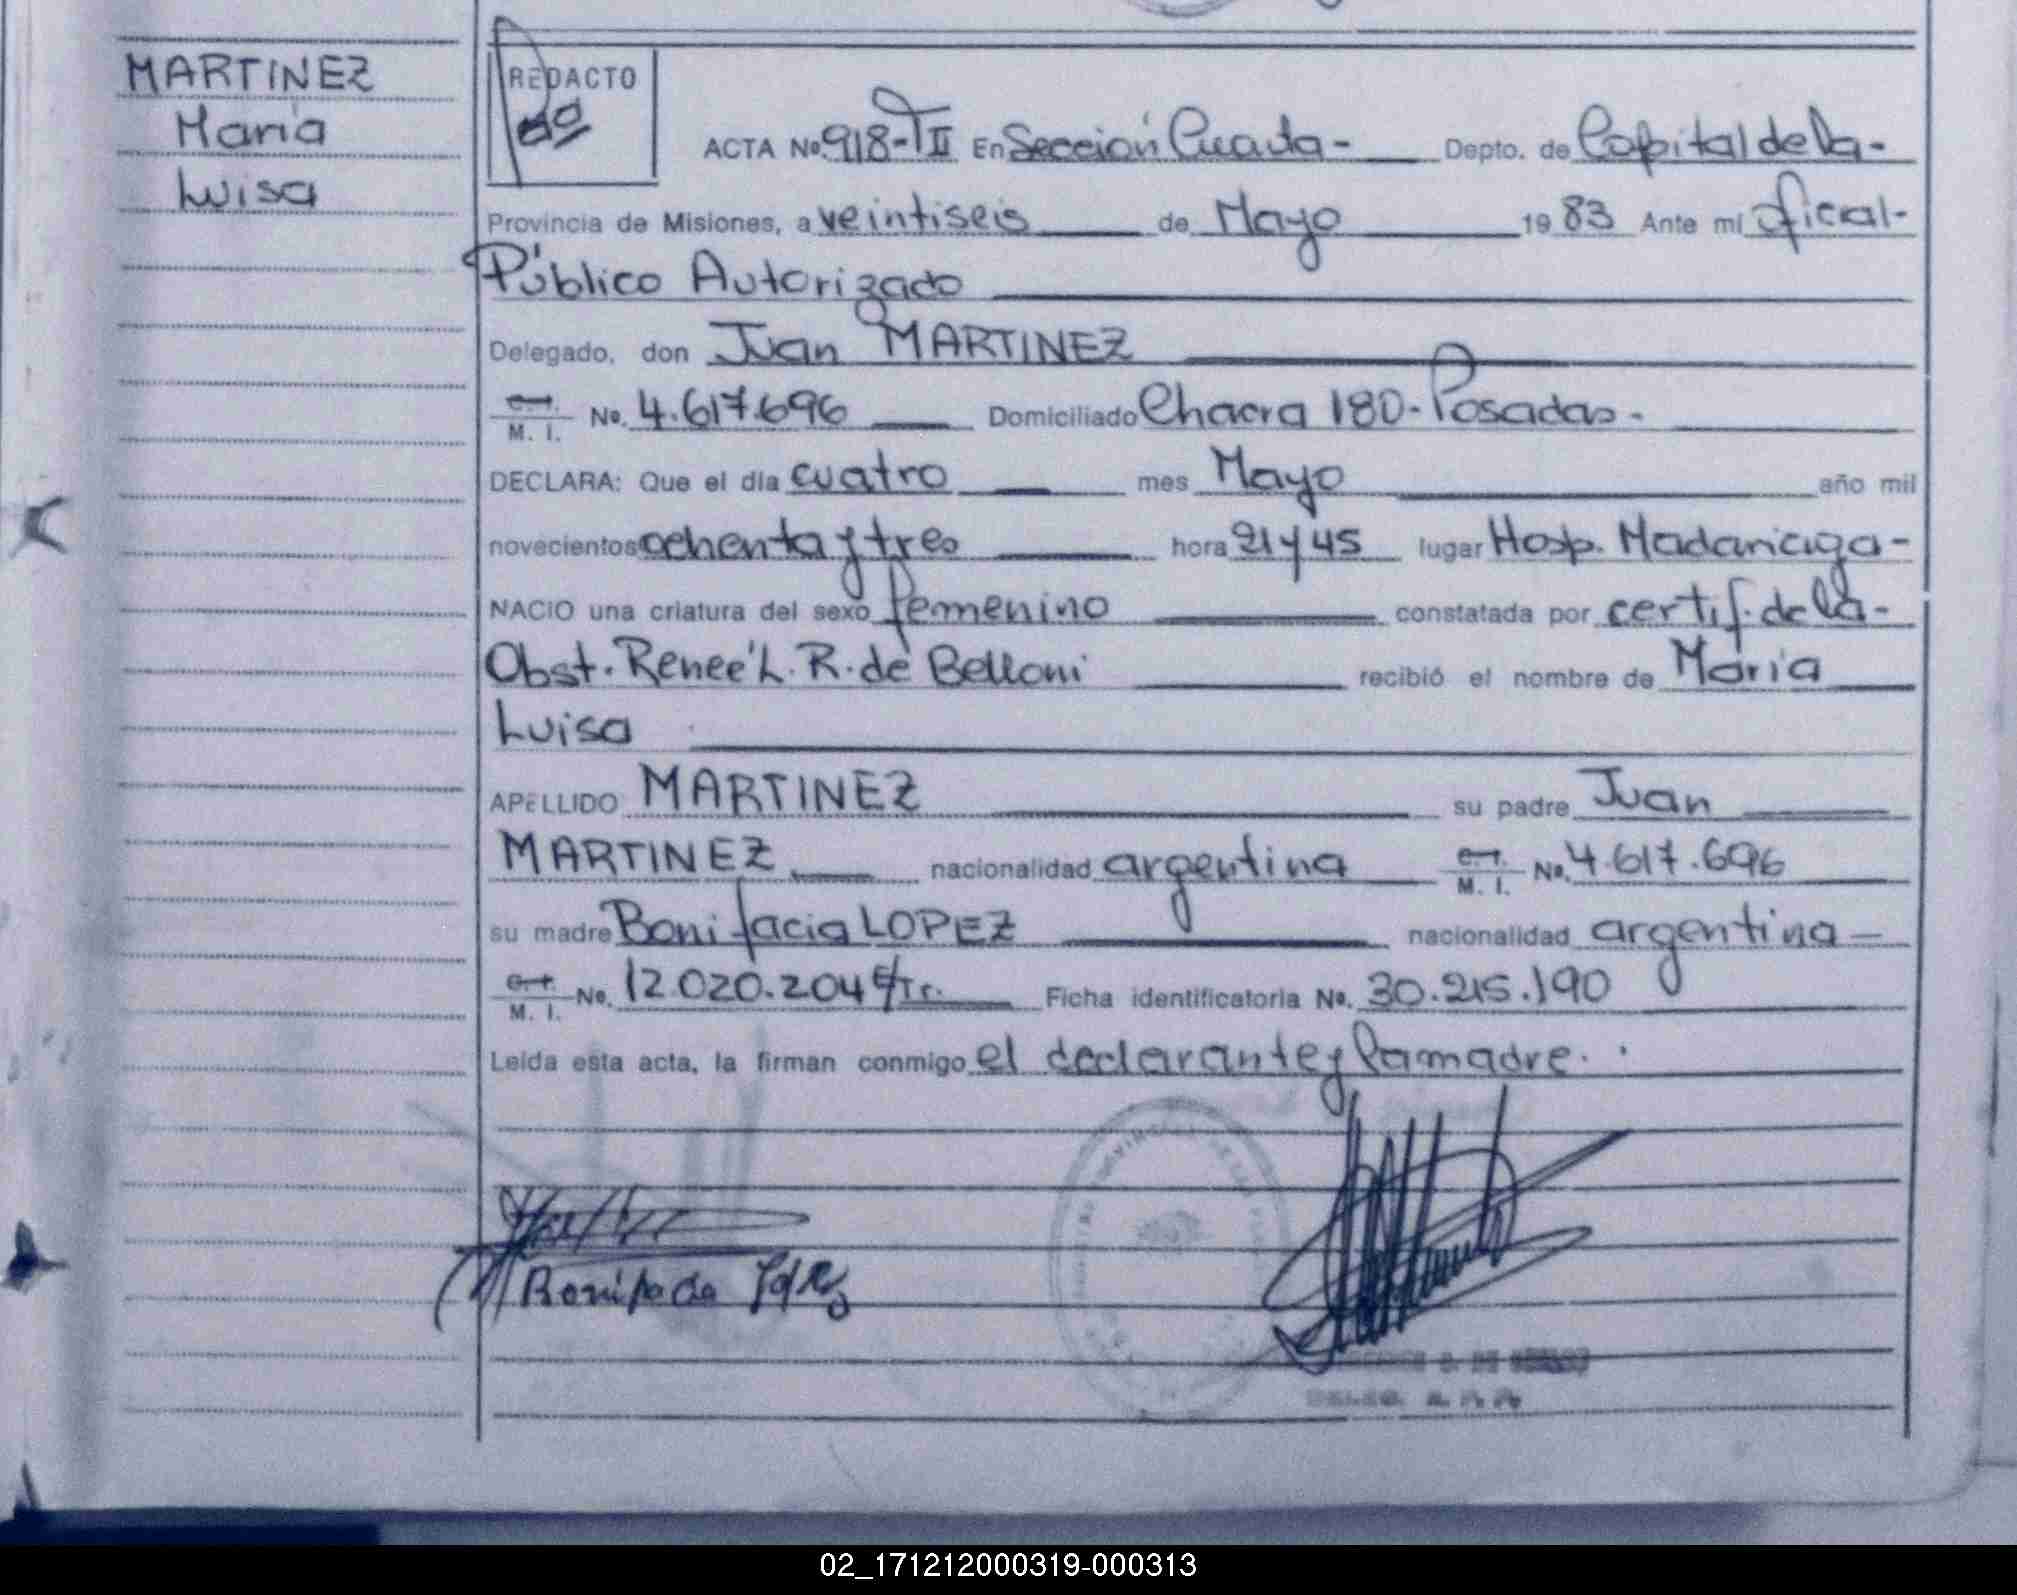 MARTINEZ
Maria
Luisa
REDACTO
ACTA Nº 918-TII En Sección Cuarta - Depto. de Capital de la -
Provincia de Misiones, a veintiseis de Mayo 19 83 Ante mí Oficial -
Público Autorizado
Delegado, don Juan MARTINEZ
M. I. No. 4.617.696 Domiciliado Chacra 180 - Posadas -
DECLARA: Que el día cuatro mes Mayo año mil
novecientos ochenta y tres hora 21 y 45 lugar Hosp. Madariaga -
NACIO una criatura del sexo femenino constatada por certif. de la -
Obst. Reneé L. R. de Belloni recibió el nombre de María
Luisa
APELLIDO MARTINEZ su padre Juan
MARTINEZ nacionalidad argentina M. I. No. 4.617.696
su madre Bonifacia LOPEZ nacionalidad argentina -
M. I. No. 12.020.204 Ficha identificatoria No. 30.215.190
Leída esta acta, la firman conmigo el declarante y la madre.
02_171212000319-000313